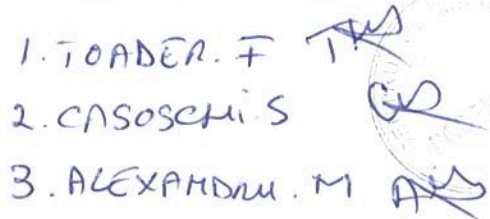 1. TOADER. F
2. CASOSCHI. S
3. ALEXANDRU. M